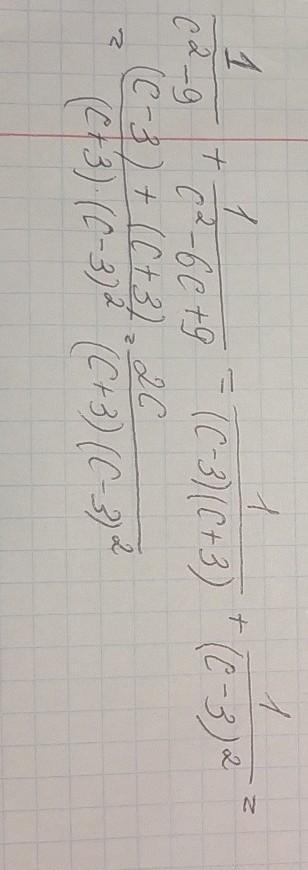 1/(c²-9) + 1/(c²-6c+9) = 1/((c-3)(c+3)) + 1/(c-3)² =
= ((c-3) + (c+3))/((c+3)·(c-3)²) = 2c/((c+3)(c-3)²)